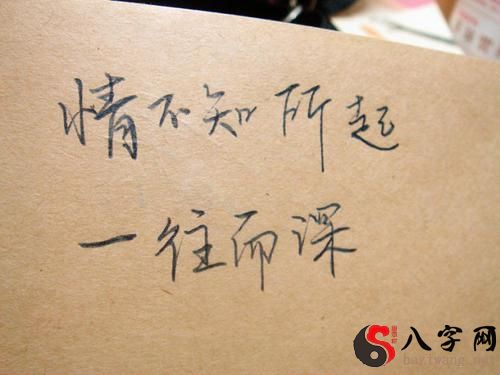 情不知所起
一往而深
八字网
baziwang.net